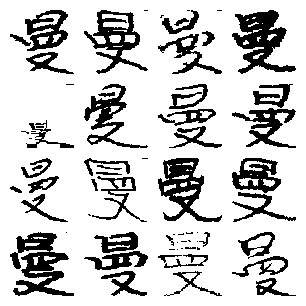 曼曼曼曼
曼曼曼曼
曼曼曼曼
曼曼曼曼